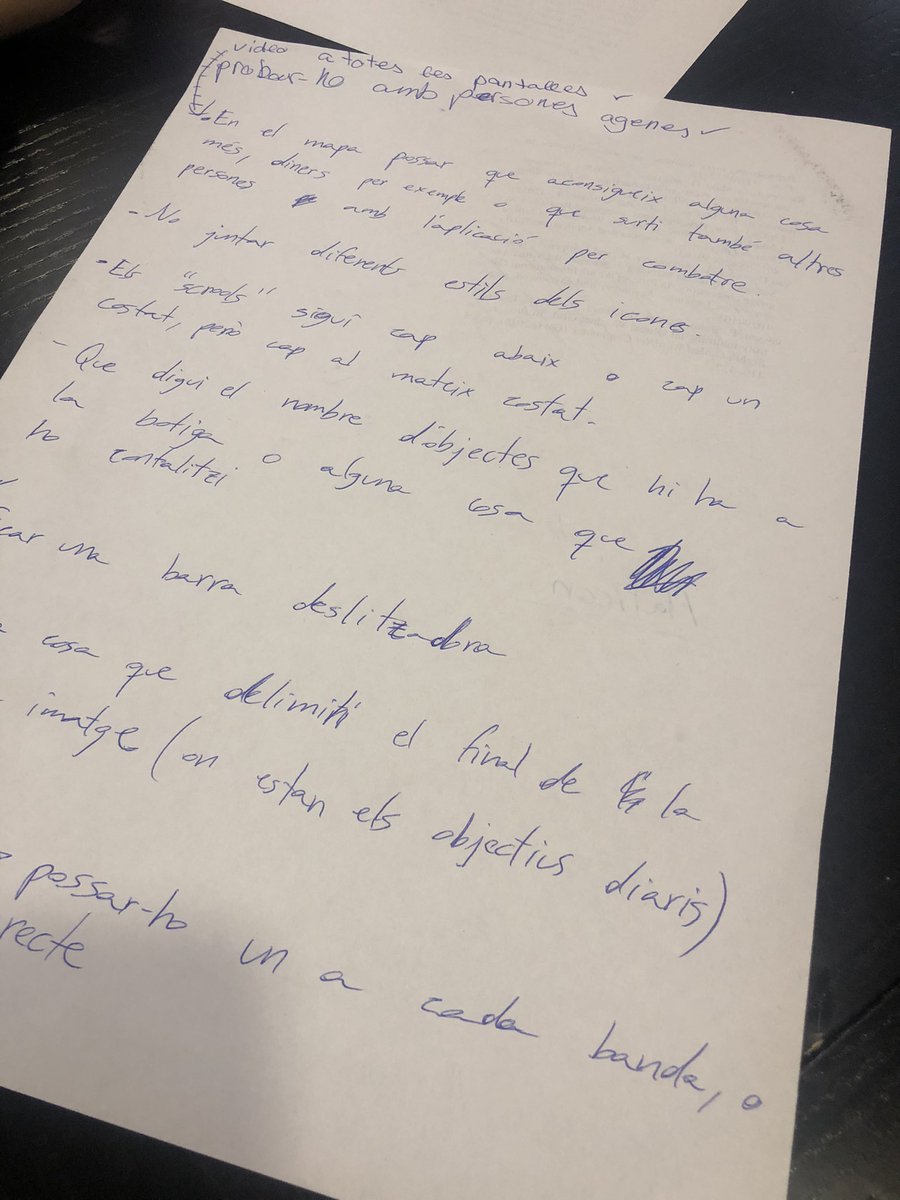 video a totes les pantalles ✓
probar-ho amb persones agenes ✓
- En el mapa possar que aconsigueix alguna cosa
més, diners per exemple o que surti també altres
persones amb l'aplicació per combatre.
- No juntar diferents estils dels icones.
- Els "scrools" sigui cap abaix o cap un
costat, però cap al mateix costat.
- Que digui el nombre d'objectes que hi ha a
la botiga o alguna cosa que
ho contalitzi
car una barra deslitzadora
cosa que delimiti el final de la
imatge (on estan els objectius diaris)
possar-ho un a cada banda, o
recte